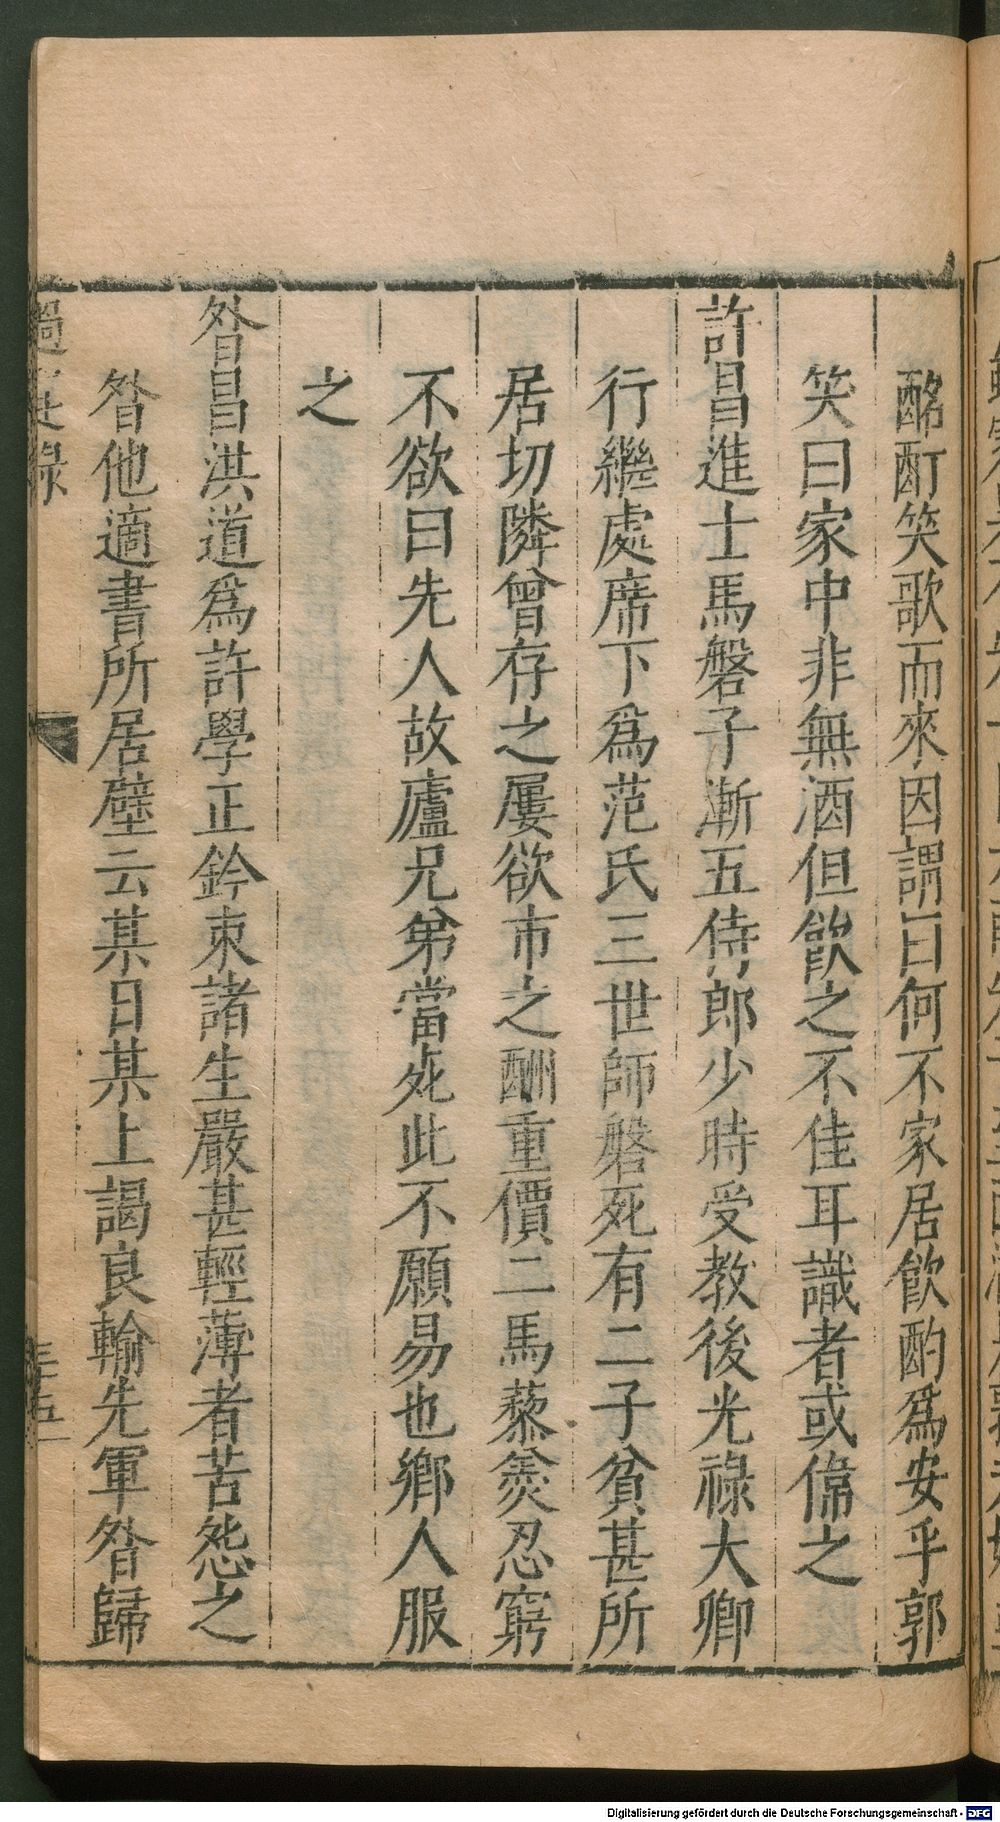 酩酊笑歌而來因謂曰何不家居飮酌爲安乎郭
笑曰家中非無酒但飮之不佳耳識者或偉之
許昌進士馬磐子漸五侍郎少時受教後光祿大卿
行繼處席下爲范氏三世師磐死有二子貧甚所
居切隣曾存之屢欲市之酬重價二馬藜羮忍窮
不欲曰先人故廬兄弟當死此不願易也鄉人服
之
昝昌洪道爲許學正鈐束諸生嚴甚輕薄者苦怨之
昝他適書所居壁云某日某上謁良輸先軍昝歸
過庭錄
三五
Digitalisierung gefördert durch die Deutsche Forschungsgemeinschaft - DFG